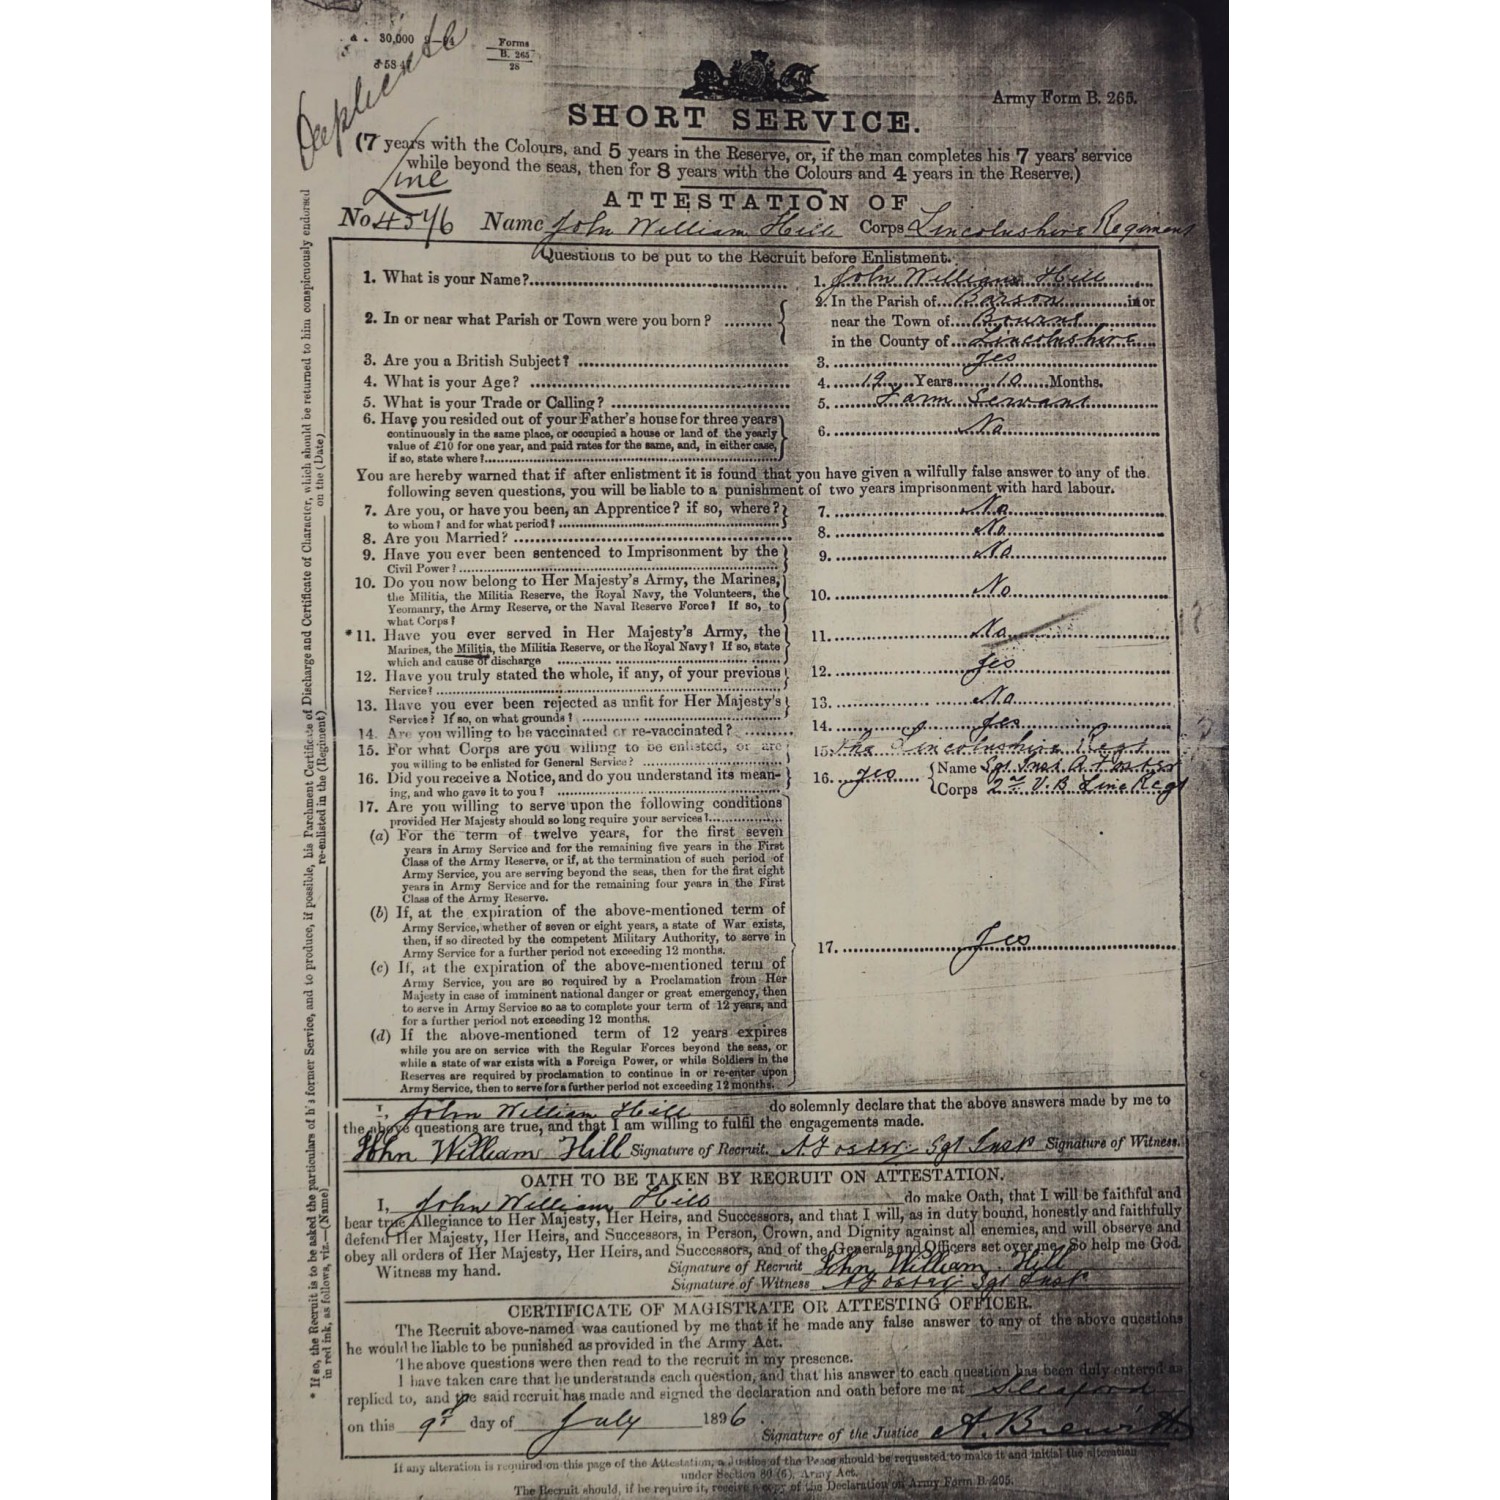 30,000
Forms
B. 265
28
Duplicate
Army Form B. 265.
SHORT SERVICE.
(7 years with the Colours, and 5 years in the Reserve, or, if the man completes his 7 years' service
while beyond the seas, then for 8 years with the Colours and 4 years in the Reserve.)
Line
ATTESTATION OF
No. 4546 Name John William Hill Corps Lincolnshire Regiment
Questions to be put to the Recruit before Enlistment.
1. What is your Name? 1. John William Hill
2. In or near what Parish or Town were you born? 2. In the Parish of in or
near the Town of Bourne
in the County of Lincolnshire
3. Are you a British Subject? 3. Yes
4. What is your Age? 4. 19 Years 10 Months.
5. What is your Trade or Calling? 5. Farm Servant
6. Have you resided out of your Father's house for three years
continuously in the same place, or occupied a house or land of the yearly
value of £10 for one year, and paid rates for the same, and, in either case,
if so, state where? 6. No
You are hereby warned that if after enlistment it is found that you have given a wilfully false answer to any of the
following seven questions, you will be liable to a punishment of two years imprisonment with hard labour.
7. Are you, or have you been, an Apprentice? if so, where?
to whom? and for what period? 7. No
8. Are you Married? 8. No
9. Have you ever been sentenced to Imprisonment by the
Civil Power? 9. No
10. Do you now belong to Her Majesty's Army, the Marines,
the Militia, the Militia Reserve, the Royal Navy, the Volunteers, the
Yeomanry, the Army Reserve, or the Naval Reserve Force? If so, to
what Corps? 10. No
*11. Have you ever served in Her Majesty's Army, the
Marines, the Militia, the Militia Reserve, or the Royal Navy? If so, state
which and cause of discharge 11. No
12. Have you truly stated the whole, if any, of your previous
Service? 12. Yes
13. Have you ever been rejected as unfit for Her Majesty's
Service? If so, on what grounds? 13. No
14. Are you willing to be vaccinated or re-vaccinated? 14. Yes
15. For what Corps are you willing to be enlisted, or are
you willing to be enlisted for General Service? 15. The Lincolnshire Regt
16. Did you receive a Notice, and do you understand its mean-
ing, and who gave it to you? 16. Yes Name Sgt Inst A Foster
Corps 2nd V. B. Linc Regt
17. Are you willing to serve upon the following conditions
provided Her Majesty should so long require your services?
(a) For the term of twelve years, for the first seven
years in Army Service and for the remaining five years in the First
Class of the Army Reserve, or if, at the termination of such period of
Army Service, you are serving beyond the seas, then for the first eight
years in Army Service and for the remaining four years in the First
Class of the Army Reserve.
(b) If, at the expiration of the above-mentioned term of
Army Service, whether of seven or eight years, a state of War exists,
then, if so directed by the competent Military Authority, to serve in
Army Service for a further period not exceeding 12 months.
17. Yes
(c) If, at the expiration of the above-mentioned term of
Army Service, you are so required by a Proclamation from Her
Majesty in case of imminent national danger or great emergency, then
to serve in Army Service so as to complete your term of 12 years, and
for a further period not exceeding 12 months.
(d) If the above-mentioned term of 12 years expires
while you are on service with the Regular Forces beyond the seas, or
while a state of war exists with a Foreign Power, or while Soldiers in the
Reserves are required by proclamation to continue in or re-enter upon
Army Service, then to serve for a further period not exceeding 12 months.
I, John William Hill do solemnly declare that the above answers made by me to
the above questions are true, and that I am willing to fulfil the engagements made.
John William Hill Signature of Recruit. A Foster Sgt Inst Signature of Witness.
OATH TO BE TAKEN BY RECRUIT ON ATTESTATION.
I, John William Hill do make Oath, that I will be faithful and
bear true Allegiance to Her Majesty, Her Heirs, and Successors, and that I will, as in duty bound, honestly and faithfully
defend Her Majesty, Her Heirs, and Successors, in Person, Crown, and Dignity against all enemies, and will observe and
obey all orders of Her Majesty, Her Heirs, and Successors, and of the Generals and Officers set over me. So help me God.
Witness my hand. Signature of Recruit John William Hill
Signature of Witness A Foster Sgt Inst
CERTIFICATE OF MAGISTRATE OR ATTESTING OFFICER.
The Recruit above-named was cautioned by me that if he made any false answer to any of the above questions
he would be liable to be punished as provided in the Army Act.
The above questions were then read to the recruit in my presence.
I have taken care that he understands each question, and that his answer to each question has been duly entered as
replied to, and the said recruit has made and signed the declaration and oath before me at Sleaford
on this 9th day of July 1896.
Signature of the Justice
If any alteration is required on this page of the Attestation, a Justice of the Peace should be requested to make it and initial the alteration
under Section 80 (6), Army Act.
The Recruit should, if he require it, receive a copy of the Declaration on Army Form B. 265.
* If so, the Recruit is to be asked the particulars of his former Service, and to produce, if possible, his Parchment Certificate of Discharge and Certificate of Character, which should be returned to him conspicuously endorsed
in red ink, as follows, viz.—(Name) re-enlisted in the (Regiment) on the (Date)